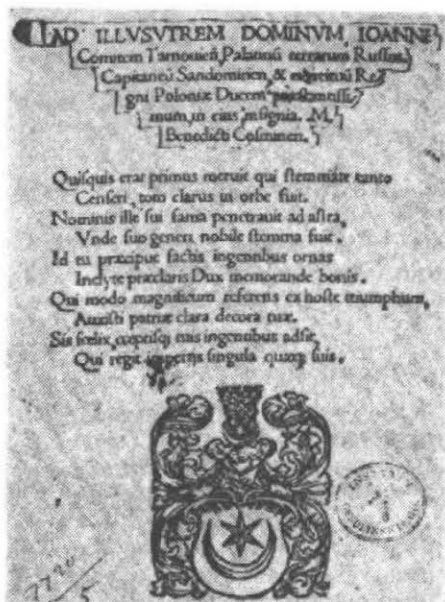 AD ILLVSVTREM DOMINVM, IOANNE
Comitem Tarnouień, Palatinū terrarum Russiæ,
Capitaneū Sandomirien, & exercituū Re-
gni Poloniæ Ducem
mum, in eius insignia. M.
Benedicti Cosminen.
Quisquis erat primus meruit qui stemmate tanto
Censeri, toto clarus in orbe fuit.
Nominis ille sui fama penetrauit ad astra,
Vnde suo generi nobile stemma fuit.
Id tu præcipue factis ingentibus ornas
Inclyte præclaris Dux memorande bonis.
Qui modo magnificum referens ex hoste triumphum,
Auxisti patriæ clara decora tuæ.
Sis fœlix, cœptisq; tuis ingentibus adsit,
Qui regit imperijs singula quæq; suis.
7720
5